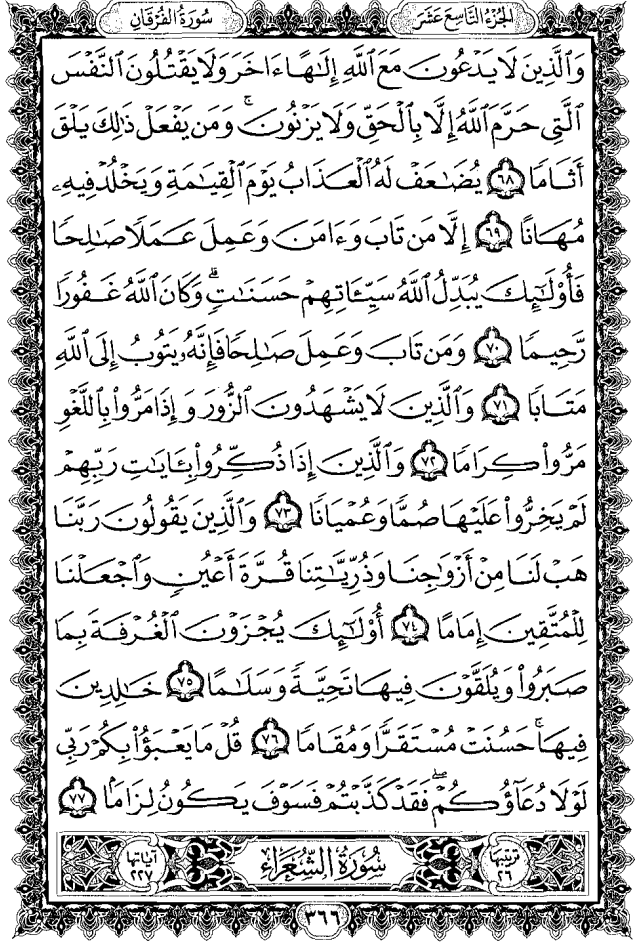 سُورَةُ الفُرْقَانِ
الجُزْءُ التَّاسِعَ عَشَرَ
وَالَّذِينَ لَا يَدْعُونَ مَعَ اللَّهِ إِلَٰهًا ءَاخَرَ وَلَا يَقْتُلُونَ النَّفْسَ
الَّتِي حَرَّمَ اللَّهُ إِلَّا بِالْحَقِّ وَلَا يَزْنُونَ ۚ وَمَن يَفْعَلْ ذَٰلِكَ يَلْقَ
أَثَامًا ٦٨ يُضَاعَفْ لَهُ الْعَذَابُ يَوْمَ الْقِيَامَةِ وَيَخْلُدْ فِيهِ
مُهَانًا ٦٩ إِلَّا مَن تَابَ وَءَامَنَ وَعَمِلَ عَمَلًا صَالِحًا
فَأُولَٰئِكَ يُبَدِّلُ اللَّهُ سَيِّئَاتِهِمْ حَسَنَاتٍ ۗ وَكَانَ اللَّهُ غَفُورًا
رَّحِيمًا ٧٠ وَمَن تَابَ وَعَمِلَ صَالِحًا فَإِنَّهُ يَتُوبُ إِلَى اللَّهِ
مَتَابًا ٧١ وَالَّذِينَ لَا يَشْهَدُونَ الزُّورَ وَإِذَا مَرُّوا بِاللَّغْوِ
مَرُّوا كِرَامًا ٧٢ وَالَّذِينَ إِذَا ذُكِّرُوا بِـَٔايَاتِ رَبِّهِمْ
لَمْ يَخِرُّوا عَلَيْهَا صُمًّا وَعُمْيَانًا ٧٣ وَالَّذِينَ يَقُولُونَ رَبَّنَا
هَبْ لَنَا مِنْ أَزْوَاجِنَا وَذُرِّيَّاتِنَا قُرَّةَ أَعْيُنٍ وَاجْعَلْنَا
لِلْمُتَّقِينَ إِمَامًا ٧٤ أُولَٰئِكَ يُجْزَوْنَ الْغُرْفَةَ بِمَا
صَبَرُوا وَيُلَقَّوْنَ فِيهَا تَحِيَّةً وَسَلَامًا ٧٥ خَالِدِينَ
فِيهَا ۚ حَسُنَتْ مُسْتَقَرًّا وَمُقَامًا ٧٦ قُلْ مَا يَعْبَؤُا بِكُمْ رَبِّي
لَوْلَا دُعَاؤُكُمْ ۖ فَقَدْ كَذَّبْتُمْ فَسَوْفَ يَكُونُ لِزَامًا ٧٧
ترتيبها ٢٦ سُورَةُ الشُّعَرَاءِ آياتها ٢٢٧
٣٦٦